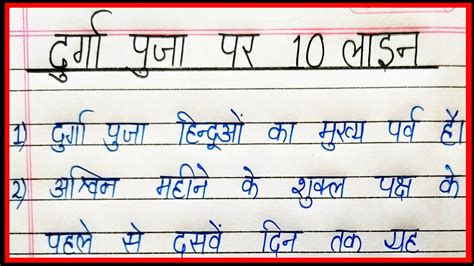 दुर्गा पुजा पर 10 लाइन
1) दुर्गा पुजा हिन्दूओं का मुख्य पर्व है।
2) अश्विन महीने के शुक्ल पक्ष के
पहले से दसवें दिन तक यह